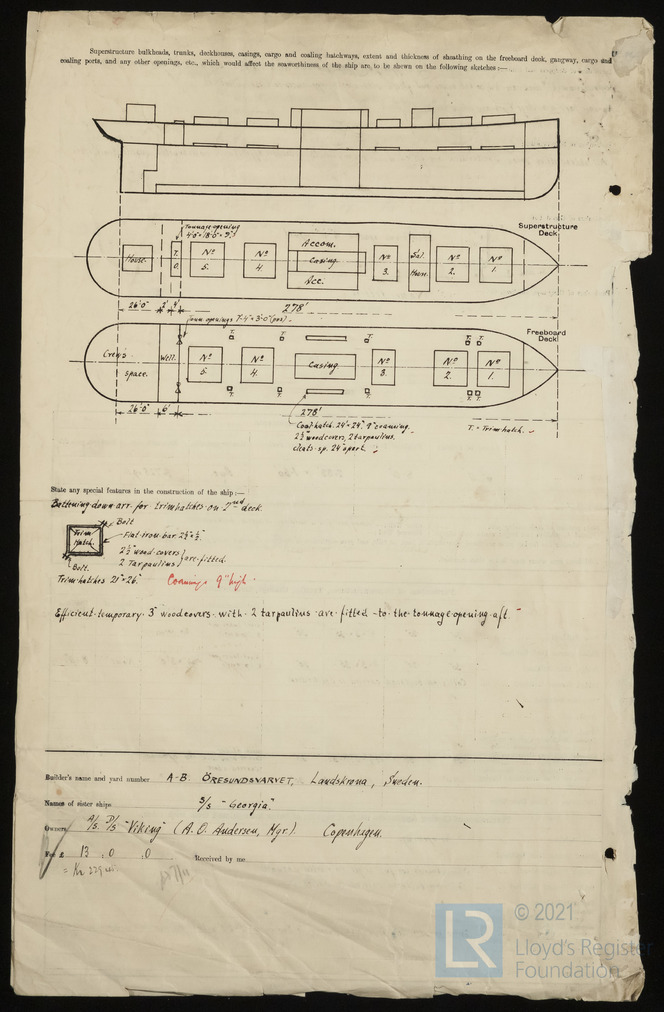 Superstructure bulkheads, trunks, deckhouses, casings, cargo and coaling hatchways, extent and thickness of sheathing on the freeboard deck, gangway, cargo and
coaling ports, and any other openings, etc., which would affect the seaworthiness of the ship are to be shewn on the following sketches :—
Tonnage opening
Superstructure
Deck.
House.
T.
O.
No
5.
No
4.
Accom.
Casing
Acc.
No
3.
House.
No
2.
No
1.
26'0"
2'
4'
278'
Freeboard
Deck
Crew's
space.
Well.
No
5.
No
4.
Casing.
No
3.
No
2.
No
1.
T.
T.
T.
T.
T.
T.
T.
T.
T.
T.
26'0"
6'
278'
Coal hatch. 24"×24" 9" coaming.
2½" wood covers, 2 tarpaulins.
cleats sp. 24" apart.
T. = Trimhatch.
State any special features in the construction of the ship :—
Battening down arr. for trimhatches on 2nd deck.
Bolt
Trim
Hatch.
Flat iron bar
2½" wood covers
2 Tarpaulins
are fitted.
Bolt.
Trimhatches 21"×26"
Coamings 9" high.
Efficient temporary 3" wood covers with 2 tarpaulins are fitted to the tonnage opening aft.
Builder's name and yard number A-B. ÖRESUNDSVARVET, Landskrona, Sweden.
Names of sister ships S/S "Georgia".
Owners A/S. D/S "Viking" (A. O. Andersen, Mgr.). Copenhagen.
Fee £ 13 : 0 : 0 Received by me
LR
© 2021
Lloyd's Register
Foundation